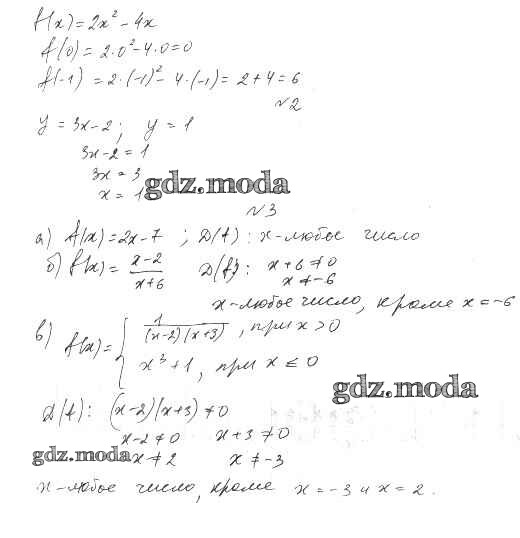 f(x)=2x² - 4x
f(0)= 2·0² - 4·0=0
f(-1) = 2·(-1)² - 4·(-1)= 2+4=6
№2
y = 3x-2; y = 1
3x-2=1
3x=3
x=1
gdz.moda
№3
а) f(x)=2x-7 ; D(f): x-любое число
б) f(x)= (x-2)/(x+6) D(f): x+6≠0
x≠-6
x-любое число, кроме x=-6
в) f(x)= { 1/((x-2)(x+3)), при x>0
x³+1, при x≤0
gdz.moda
D(f): (x-2)(x+3)≠0
x-2≠0 x+3≠0
gdz.moda x≠2 x≠-3
x-любое число, кроме x=-3 и x=2.